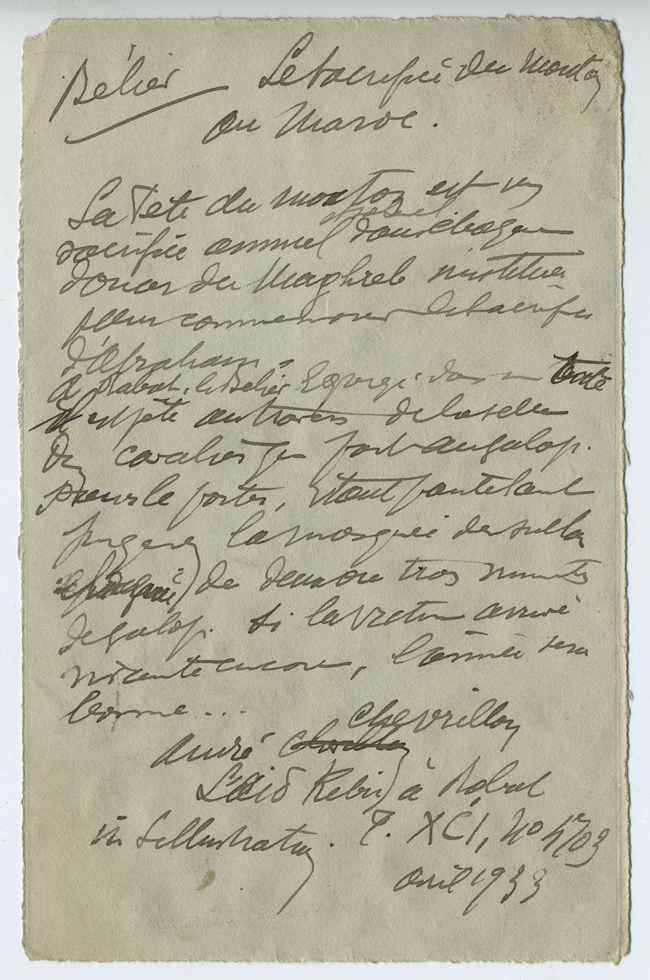 Bélier Le sacrifice du mouton
au Maroc.
La Fête du mouton est un
sacrifice annuel dans chaque
douar du Maghreb institué
pour commemorer le sacrifice
d'Abraham.
A Rabat, le Bélier égorgé dans un
est jeté au travers de la selle
du cavalier qui part au galop.
pour le porter, tout pantelant
jusque la mosquée de
de deux ou trois minutes
de galop. Si la victime arrive
vivante encore, l'année sera
bonne...
Chevrillon
André
L'Aïd Kebir à Rabat
in L'Illustration. T. XCI, No 4703
avril 1933